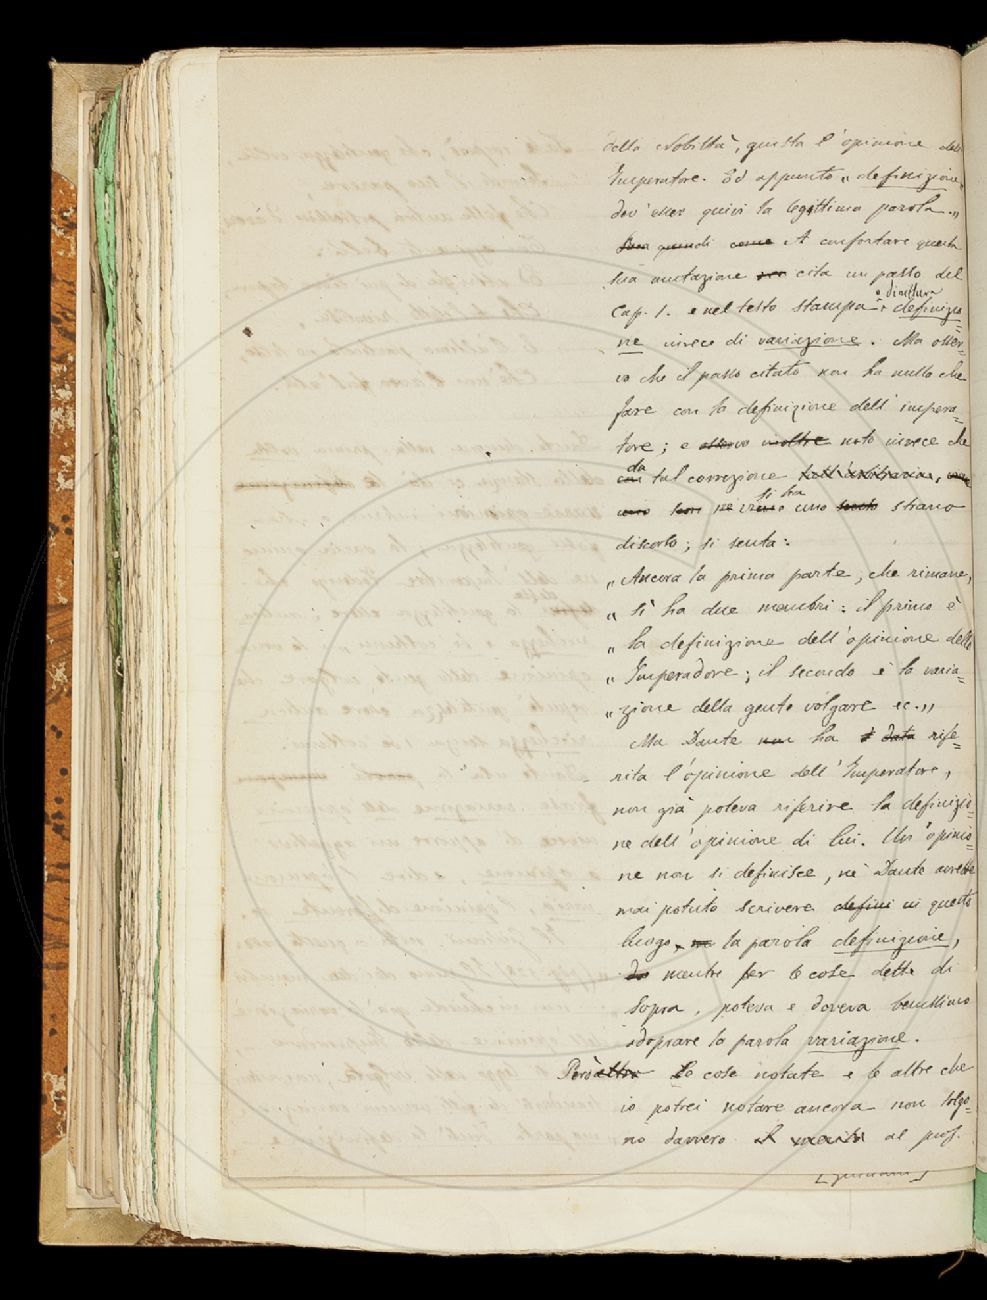 della Nobiltà, questa l'opinione dell'
Imperatore. Ed appunto „ definizione,
dov'esser quivi la legittima parola „
quindi come A confortare questa
sua mutazione cita un passo del
addirittura
Cap. 1. e nel testo stampa: definizio=
ne invece di variazione. Ma osser=
vo che il passo citato non ha nulla che
fare con la definizione dell'impera=
tore; e osservo inoltre noto invece che
da
con tal correzione tutt'arbitraria,
si ha
ne viene uno strano
discorso; si senta:
„ Ancora la prima parte, che rimane,
„ si ha due membri: il primo è
„ la definizione dell'opinione dello
„ Imperadore; il secondo è la varia=
„ zione della gente volgare ec. „
Ma Dante non ha data rife=
rita l'opinione dell'Imperatore,
non già poteva riferire la definizio=
ne dell'opinione di lui. Un'opinio=
ne non si definisce, nè Dante avrebbe
mai potuto scrivere defini in questo
luogo, la parola definizione,
mentre per le cose dette di
sopra, poteva e doveva benissimo
adoprare la parola variazione.
Però altro Le cose notate e le altre che
io potrei notare ancora non tolgo=
no davvero il merito al prof.
[Giuliani]